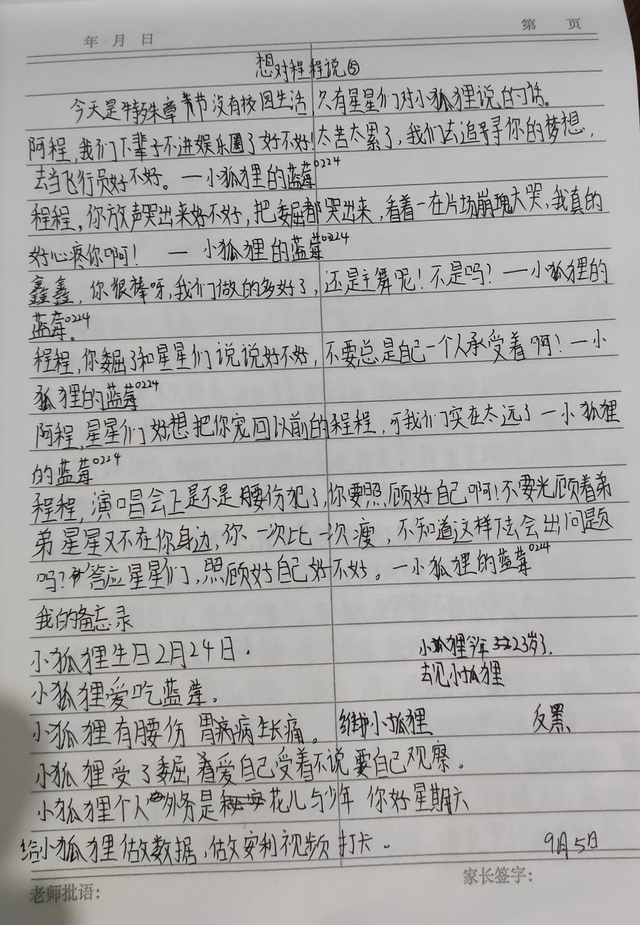 年 月 日 第 页
想对程程说⑤
今天是特殊章节没有校园生活 只有星星们对小狐狸说的话。
阿程,我们下辈子不进娱乐圈了好不好!太苦太累了,我们去追寻你的梦想,
去当飞行员好不好。—小狐狸的蓝莓0224
程程,你放声哭出来好不好,把委屈都哭出来,看着一在片场崩瑰大哭,我真的
好心疼你啊! — 小狐狸的蓝莓0224
鑫鑫,你很棒呀,我们做的多好了,还是主舞呢!不是吗?—小狐狸的
蓝莓。0224
程程,你委屈了和星星们说说好不好,不要总是自己一个人承受着啊!—小
狐狸的蓝莓0224
阿程,星星们好想把你宠回以前的程程,可我们实在太远了—小狐狸
的蓝莓0224
程程,演唱会上是不是腰伤犯了,你要照顾好自己啊!不要光顾着弟
弟星星又不在你身边,你一次比一次瘦,不知道这样下去会出问题
吗?答应星星们,照顾好自己好不好。—小狐狸的蓝莓0224
我的备忘录
小狐狸生日2月24日. 小狐狸今年23岁了.
小狐狸爱吃蓝莓。 去见小狐狸
小狐狸有腰伤 胃病 生长痛。 维护小狐狸 反黑
小狐狸受了委屈着爱自己受着不说要自己观察。
小狐狸个人外务是花儿与少年 你好星期六
给小狐狸做数据,做安利视频 打卡. 9月5日
老师批语: 家长签字: